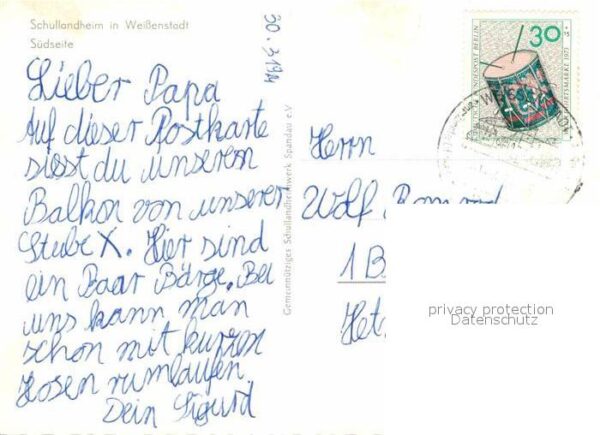 Schullandheim in Weißenstadt
Südseite
30.3.1974
Lieber Papa
Auf dieser Postkarte
siest du unseren
Balkon von unserer
Stube X. Hier sind
ein Baar Bärge. Bei
uns kann man
schon mit kurzen
Hosen rumlaufen.
Dein Sigurd
Gemeinnütziges Schullandheimwerk Spandau e.V
30
POST BERLIN
1973
Herrn
Wolf
1 B
privacy protection
Datenschutz